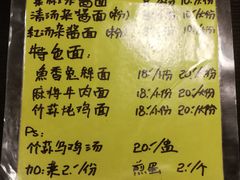 清汤杂酱面(粉)
红汤杂酱面(粉)
特色面:
鱼香兔鲜面 18元/份 20元/份
麻辣牛肉面 18元/份 20元/份
竹荪炖鸡面 18元/份 20元/份
Ps:
竹荪乌鸡汤 20元/盅
加:素2元/份 煎蛋2元/个